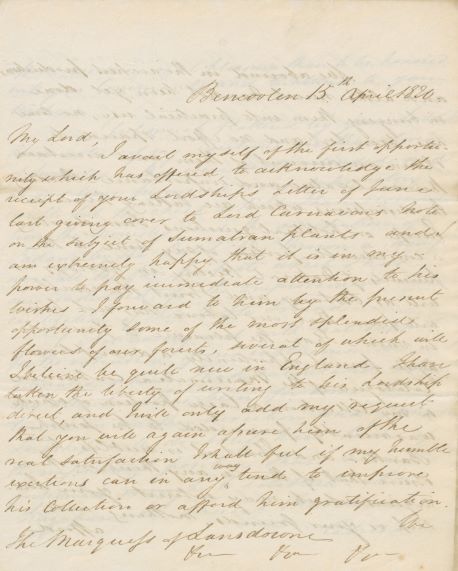 Bencoolen 15th April 1820
My Lord,
I avail myself of the first opportu-
nity which has offered to acknowledge the
receipt of your Lordships Letter of June
last giving cover to Lord Carnarvons Note
on the subject of Sumatran plants and I
am extremely happy that it is in my
power to pay immediate attention to his
wishes - I forward to him by the present
opportunity some of the most splendid
flowers of our forests, several of which will
I believe be quite new in England, I have
taken the liberty of writing to his Lordship
direct, and will only add my request
that you will again assure him of the
real satisfaction I shall feel if my humble
exertions can in any way tend to improve
his Collection or afford him gratification.
The Marquess of Lansdowne